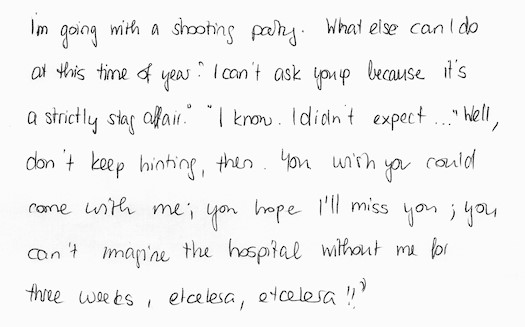 I'm going with a shooting party. What else can I do
at this time of year? I can't ask you up because it's
a strictly stag affair." "I know. I didn't expect ..." Well,
don't keep hinting, then. You wish you could
come with me; you hope I'll miss you; you
can't imagine the hospital without me for
three weeks, etcelesa, etcelesa!!"